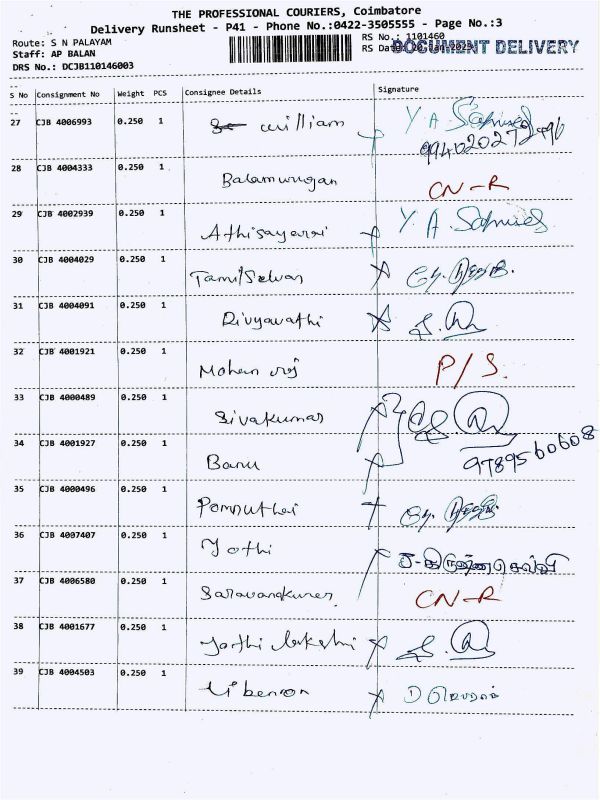 THE PROFESSIONAL COURIERS, Coimbatore
Delivery Runsheet - P41 - Phone No.:0422-3505555 - Page No.:3
Route: S N PALAYAM
RS No.: 1101460
Staff: AP BALAN
RS Date: 20 Jan 2025
DOCUMENT DELIVERY
DRS No.: DCJB110146003
S No Consignment No Weight PCS Consignee Details Signature
27 CJB 4006993 0.250 1 william Y. A. Samuel
28 CJB 4004333 0.250 1 Balamurugan CN-R
29 CJB 4002939 0.250 1 Athisayaraj Y. A. Samuel
30 CJB 4004029 0.250 1 Tamilselvan
31 CJB 4004091 0.250 1 Divyavathi
32 CJB 4001921 0.250 1 Mohan raj P/S.
33 CJB 4000489 0.250 1 Sivakumar
34 CJB 4001927 0.250 1 Banu 9789560608
35 CJB 4000496 0.250 1 Ponnuthai
36 CJB 4007407 0.250 1 Jothi
37 CJB 4006580 0.250 1 Saravanakumar CN-R
38 CJB 4001677 0.250 1 Jothi lakshmi
39 CJB 4004503 0.250 1